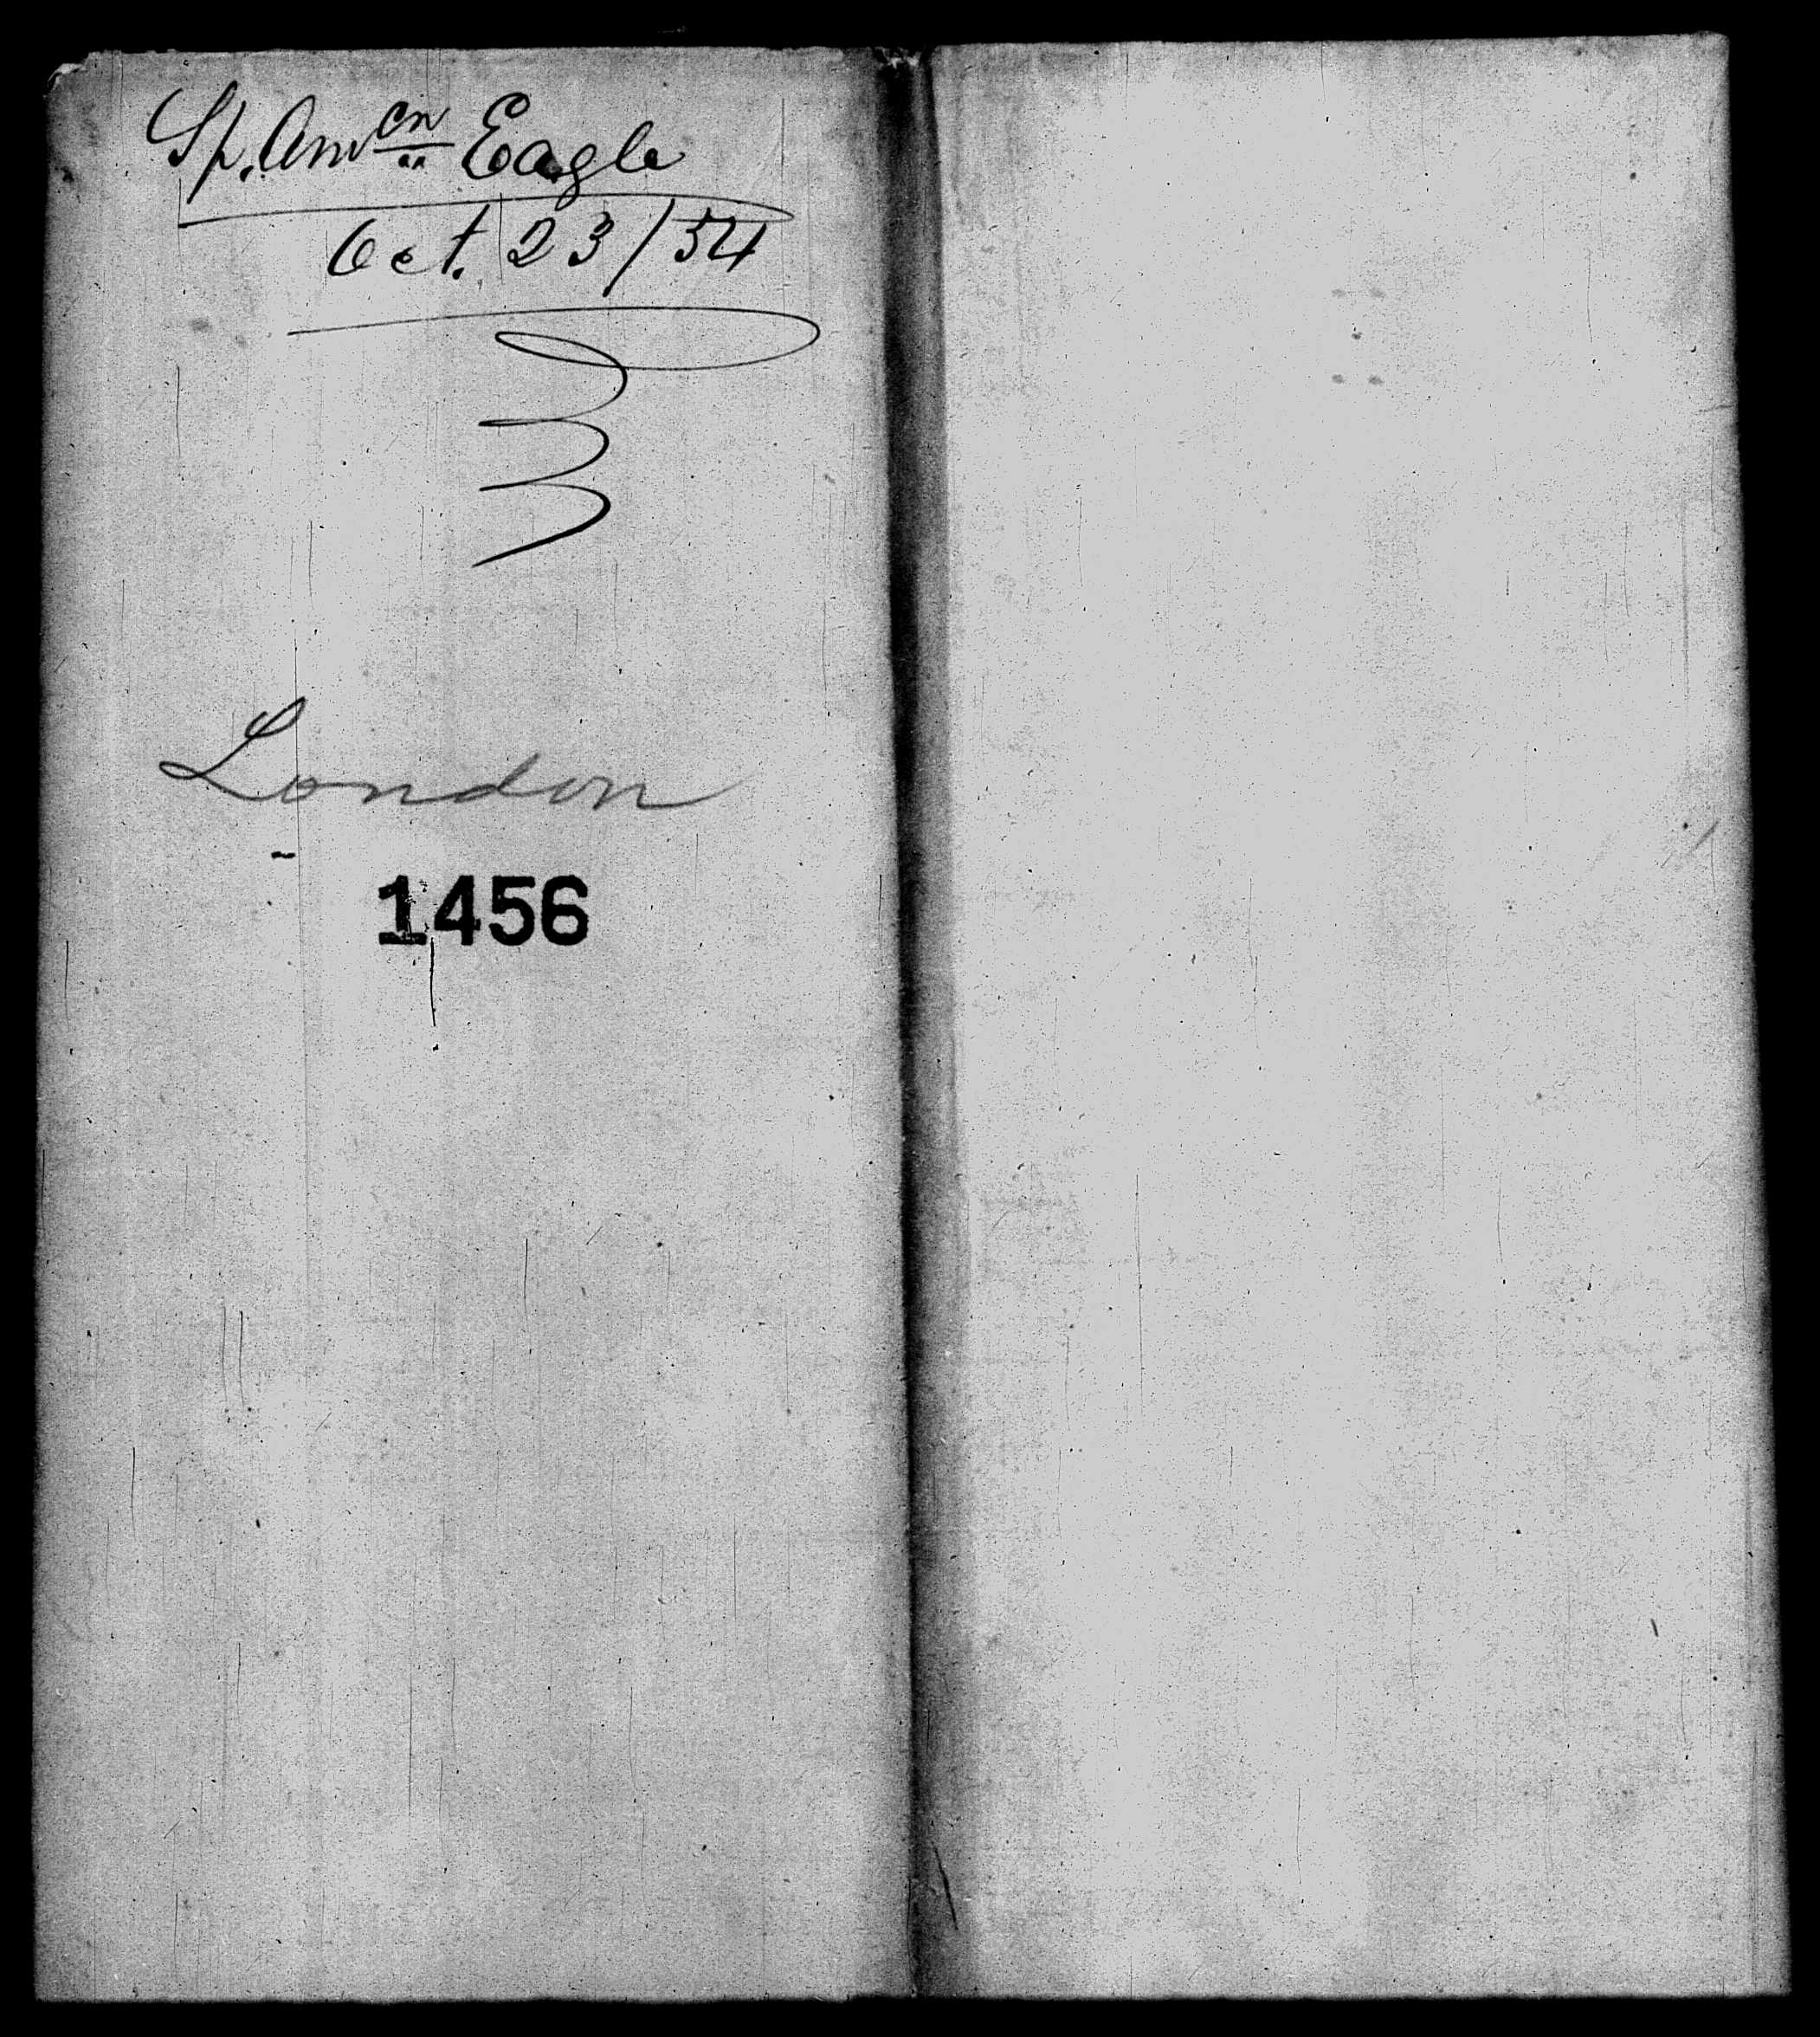 Sp. Amcn Eagle
Oct. 23/54
London
1456